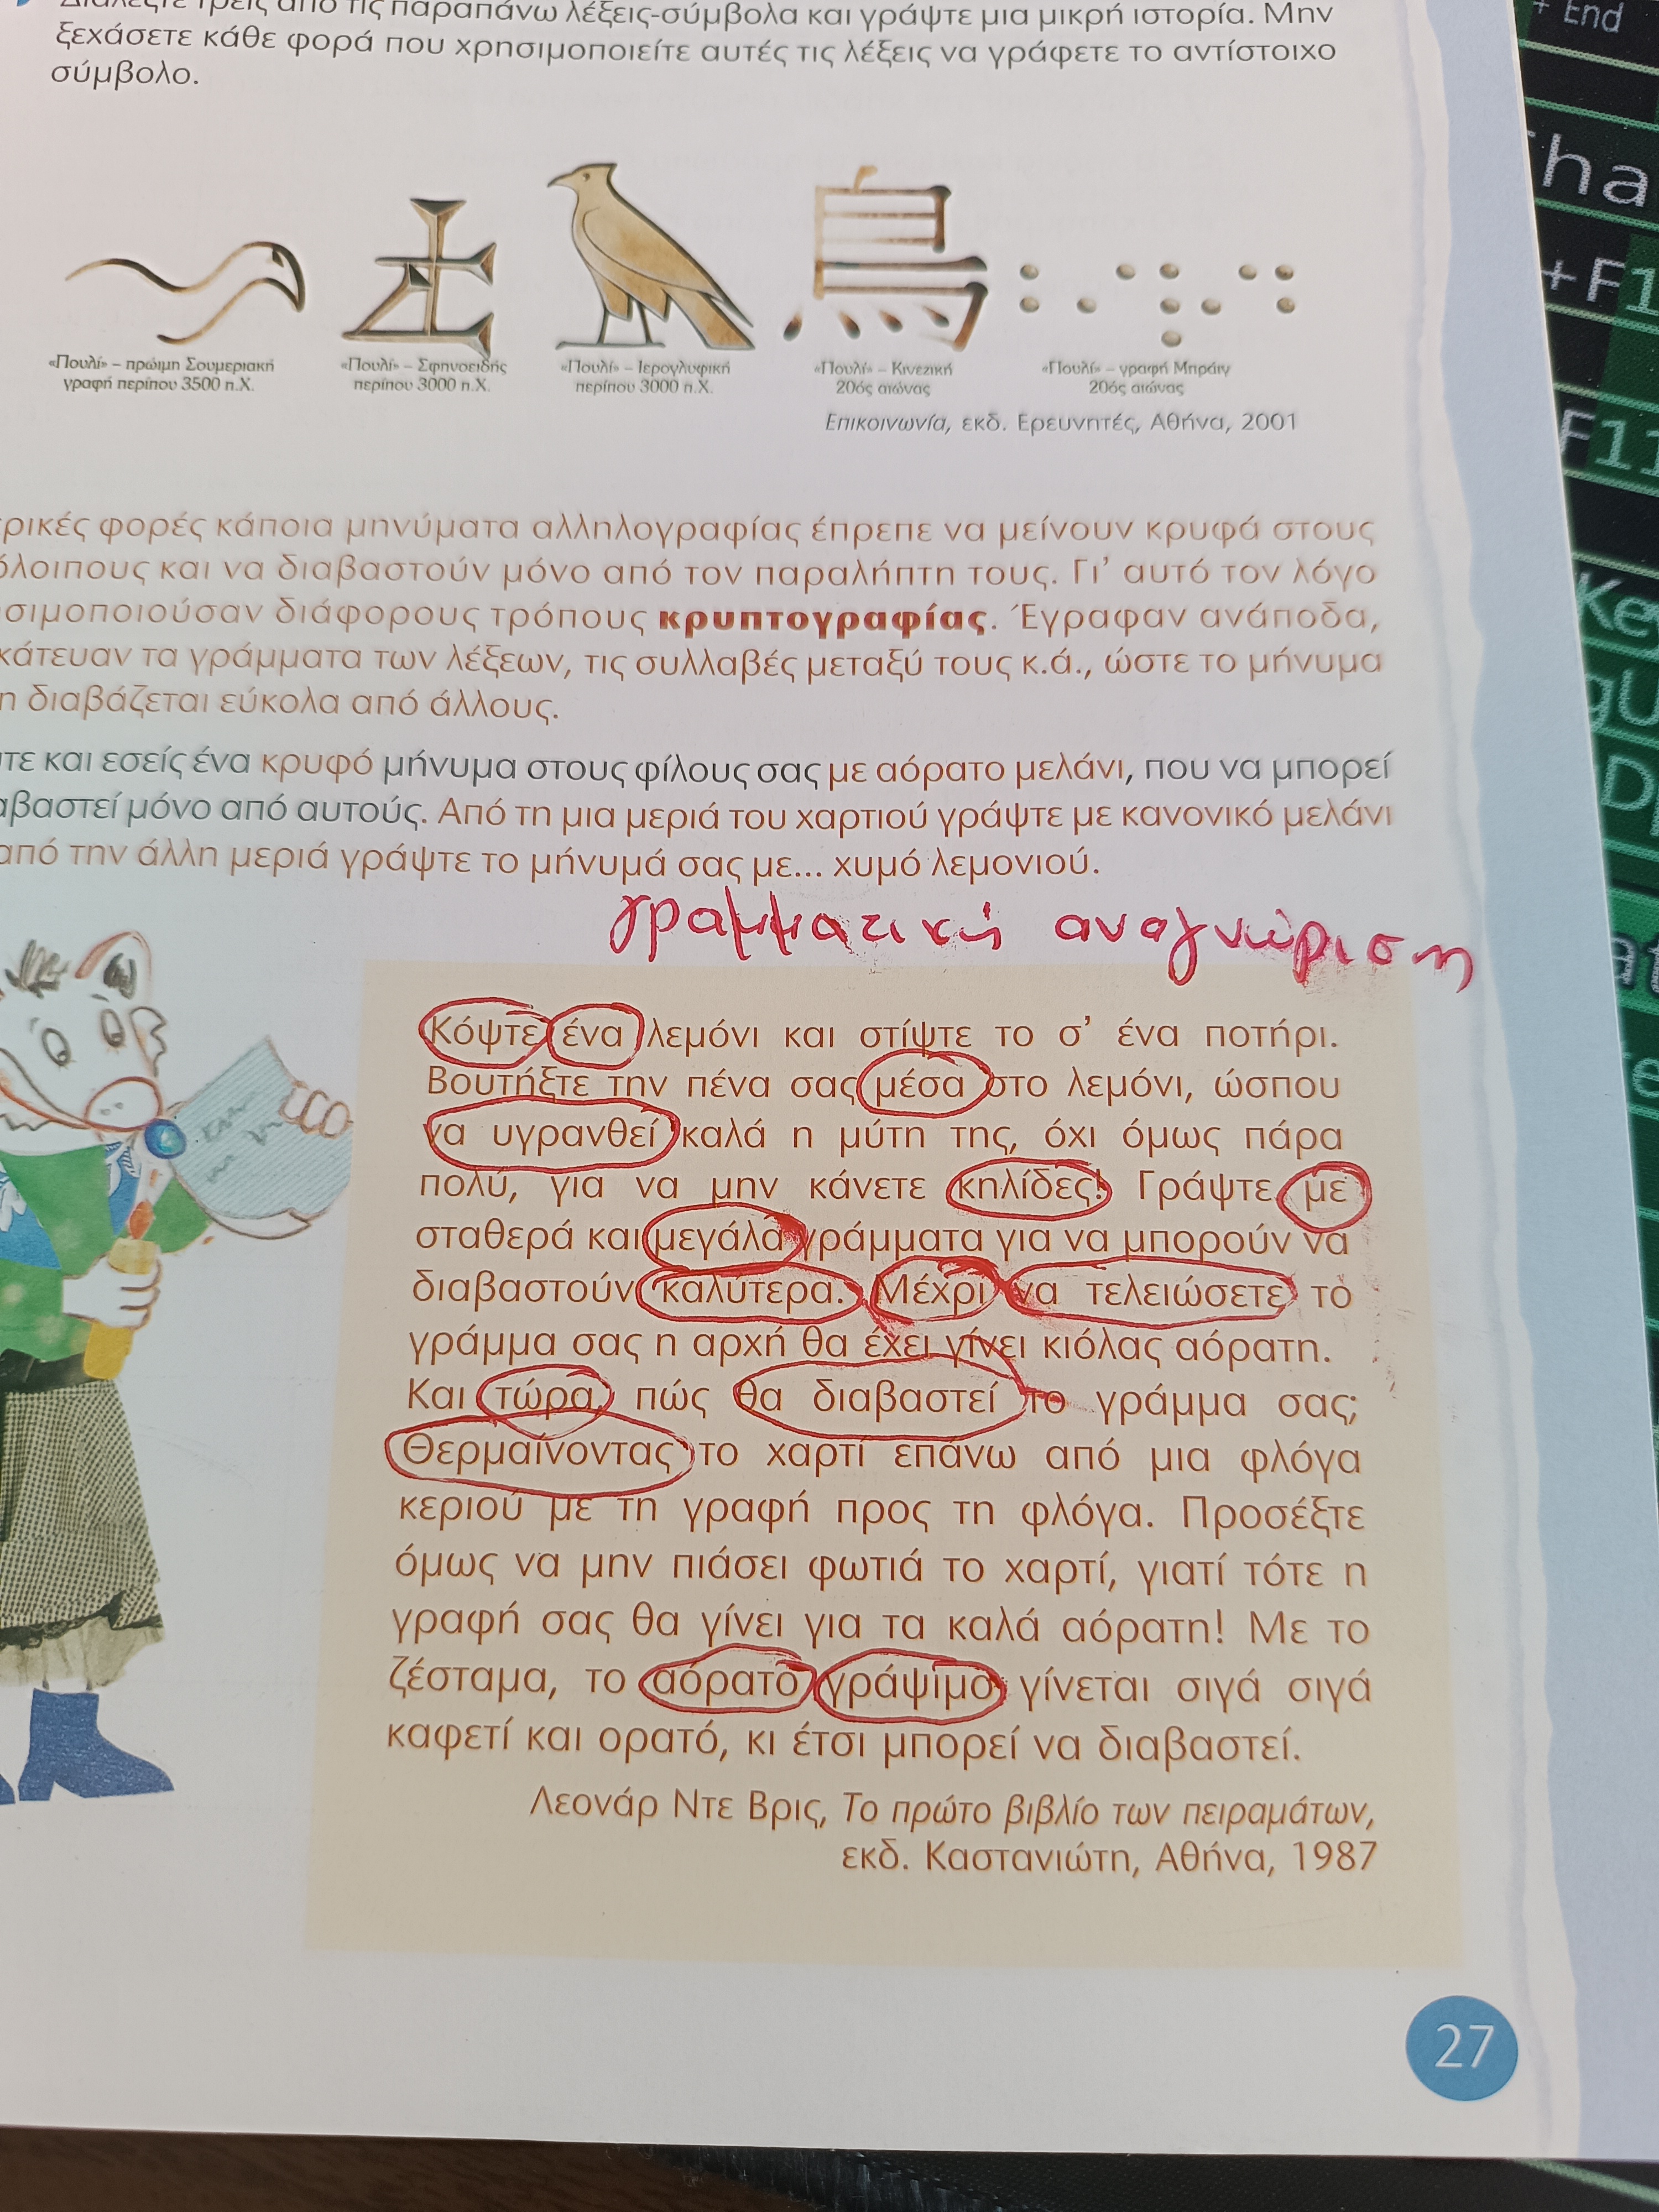 Διαλέξτε τρεις από τις παραπάνω λέξεις-σύμβολα και γράψτε μια μικρή ιστορία. Μην
ξεχάσετε κάθε φορά που χρησιμοποιείτε αυτές τις λέξεις να γράφετε το αντίστοιχο
σύμβολο.
鳥
«Πουλί» – πρώιμη Σουμεριακή
γραφή περίπου 3500 π.Χ.
«Πουλί» – Σφηνοειδής
περίπου 3000 π.Χ.
«Πουλί» – Ιερογλυφική
περίπου 3000 π.Χ.
«Πουλί» – Κινεζική
20ός αιώνας
«Πουλί» – γραφή Μπράιγ
20ός αιώνας
Επικοινωνία, εκδ. Ερευνητές, Αθήνα, 2001
φορές κάποια μηνύματα αλληλογραφίας έπρεπε να μείνουν κρυφά στους
και να διαβαστούν μόνο από τον παραλήπτη τους. Γι' αυτό τον λόγο
διάφορους τρόπους κρυπτογραφίας. Έγραφαν ανάποδα,
τα γράμματα των λέξεων, τις συλλαβές μεταξύ τους κ.ά., ώστε το μήνυμα
διαβάζεται εύκολα από άλλους.
και εσείς ένα κρυφό μήνυμα στους φίλους σας με αόρατο μελάνι, που να μπορεί
μόνο από αυτούς. Από τη μια μεριά του χαρτιού γράψτε με κανονικό μελάνι
από την άλλη μεριά γράψτε το μήνυμά σας με... χυμό λεμονιού.
γραμματική αναγνώριση
Κόψτε ένα λεμόνι και στίψτε το σ' ένα ποτήρι.
Βουτήξτε την πένα σας μέσα στο λεμόνι, ώσπου
να υγρανθεί καλά η μύτη της, όχι όμως πάρα
πολύ, για να μην κάνετε κηλίδες! Γράψτε με
σταθερά και μεγάλα γράμματα για να μπορούν να
διαβαστούν καλύτερα. Μέχρι να τελειώσετε το
γράμμα σας η αρχή θα έχει γίνει κιόλας αόρατη.
Και τώρα, πώς θα διαβαστεί το γράμμα σας;
Θερμαίνοντας το χαρτί επάνω από μια φλόγα
κεριού με τη γραφή προς τη φλόγα. Προσέξτε
όμως να μην πιάσει φωτιά το χαρτί, γιατί τότε η
γραφή σας θα γίνει για τα καλά αόρατη! Με το
ζέσταμα, το αόρατο γράψιμο γίνεται σιγά σιγά
καφετί και ορατό, κι έτσι μπορεί να διαβαστεί.
Λεονάρ Ντε Βρις, Το πρώτο βιβλίο των πειραμάτων,
εκδ. Καστανιώτη, Αθήνα, 1987
27
+ End